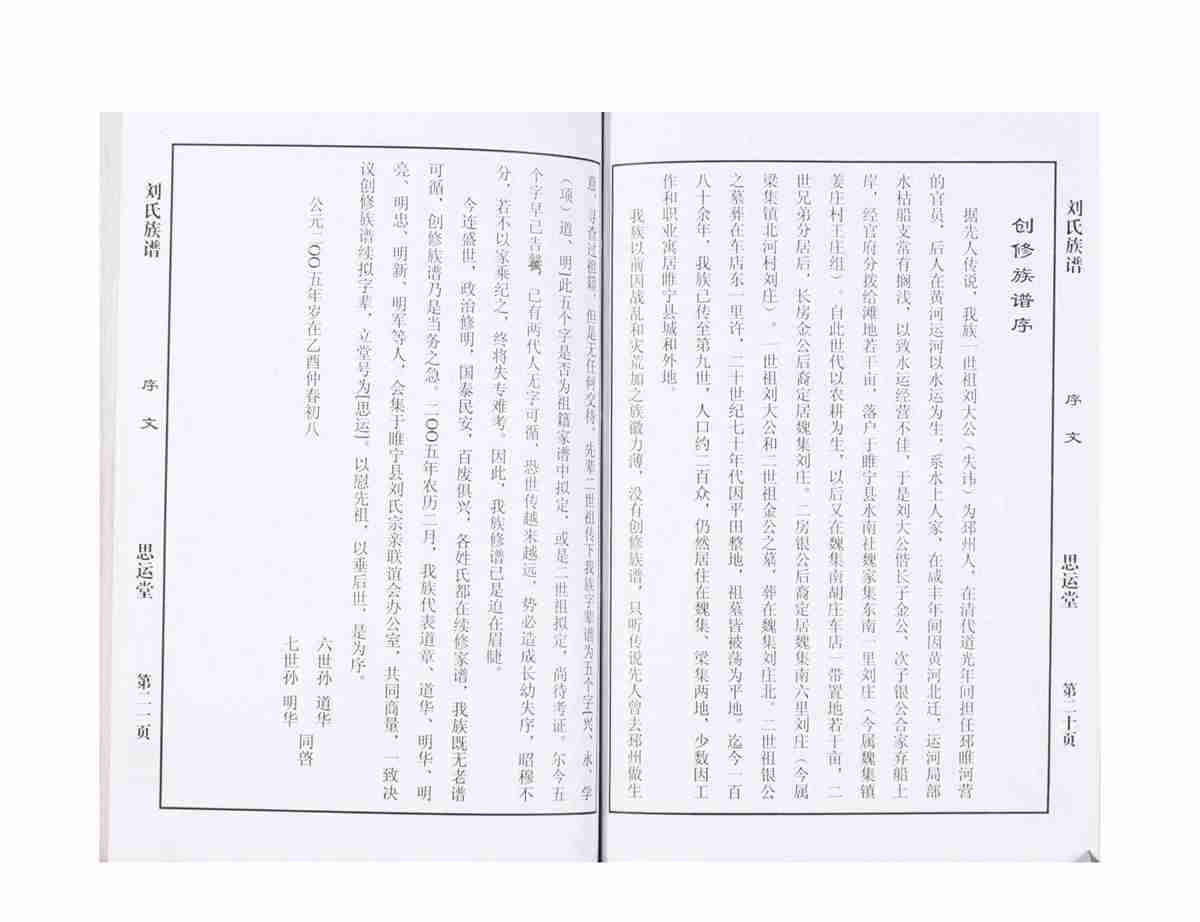 刘氏族谱
序文
思运堂
第二十页
创修族谱序
据先人传说，我族一世祖刘大公（失讳）为邳州人，在清代道光年间担任邳睢河营
的官员，后人在黄河运河以水运为生，系水上人家，在咸丰年间因黄河北迁，运河局部
水枯船支常有搁浅，以致水运经营不佳，于是刘大公偕长子金公、次子银公合家弃船上
岸，经官府分拨给滩地若干亩，落户于睢宁县水南社魏家集东南一里刘庄（今属魏集镇
姜庄村王庄组）。自此世代以农耕为生，以后又在魏集南胡庄车店一带置地若干亩，二
世兄弟分居后，长房金公后裔定居魏集刘庄。二房银公后裔定居魏集南六里刘庄（今属
梁集镇北河村刘庄）。一世祖刘大公和二世祖金公之墓，葬在魏集刘庄北。二世祖银公
之墓葬在车店东一里许，二十世纪七十年代因平田整地，祖墓皆被荡为平地。迄今一百
八十余年，我族已传至第九世，人口约二百众，仍然居住在魏集、梁集两地，少数因工
作和职业寓居睢宁县城和外地。
我族以前因战乱和灾荒加之族徽力薄，没有创修族谱，只听传说先人曾去邳州做生
意，寻查过祖籍，但是无任何交待。先辈二世祖传下我族字辈谱为五个字「兴、永、学
（项）道、明」此五个字是否为祖籍家谱中拟定，或是二世祖拟定，尚待考证。尔今五
个字早已告罄，已有两代人无字可循，恐世传越来越远，势必造成长幼失序，昭穆不
分，若不以家乘纪之，终将失专难考。因此，我族修谱已是迫在眉睫。
今连盛世，政治修明，国泰民安，百废俱兴，各姓氏都在续修家谱，我族既无老谱
可循，创修族谱乃是当务之急。二00五年农历二月，我族代表道章、道华、明华、明
亮、明忠、明新、明军等人，会集于睢宁县刘氏宗亲联谊会办公室，共同商量，一致决
议创修族谱续拟字辈，立堂号为「思运」。以慰先祖，以垂后世，是为序。
六世孙 道华
七世孙 明华
同启
公元二00五年岁在乙酉仲春初八
刘氏族谱
序文
思运堂
第二一页